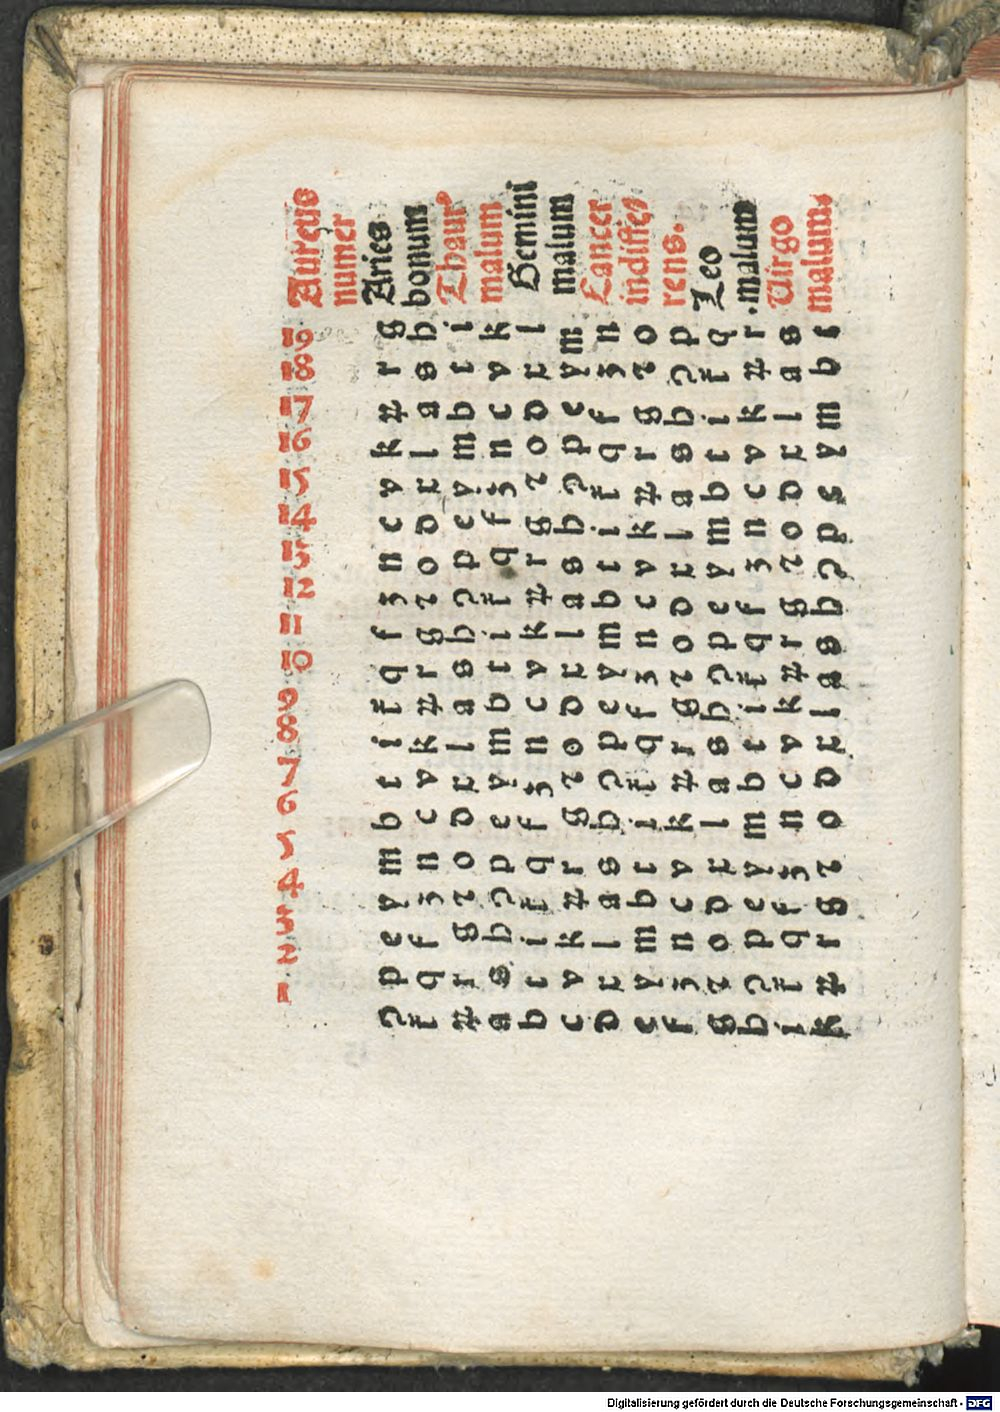 1 2 3 4 5 6 7 8 9 10 11 12 13 14 15 16 17 18 19 Aureus
numer
ɔ p e y m b t i ꝉ q f ʒ n c v k ꝝ r g Aries
ꝉ q f ʒ n c v k ꝝ r g ꝛ o d x l a s h bonum
ꝝ r g ꝛ o d x l a s h ɔ p e y m b t i Thaur9
a s h ɔ p e y m b t i ꝉ q f ʒ n c v k malum
b t i ꝉ q f ʒ n c v k ꝝ r g ꝛ o d x l Gemini
c v k ꝝ r g ꝛ o d x l a s h ɔ p e y m malum
d x l a s h ɔ p e y m b t i ꝉ q f ʒ n Cancer
e y m b t i ꝉ q f ʒ n c v k ꝝ r g ꝛ o indiffe
f ʒ n c v k ꝝ r g ꝛ o d x l a s h ɔ p rens.
g ꝛ o d x l a s h ɔ p e y m b t i ꝉ q Leo
h ɔ p e y m b t i ꝉ q f ʒ n c v k ꝝ r .malum
i ꝉ q f ʒ n c v k ꝝ r g ꝛ o d x l a s Uirgo
k ꝝ r g ꝛ o d x l a s h ɔ p s y m b t malum.
Digitalisierung gefördert durch die Deutsche Forschungsgemeinschaft - DFG